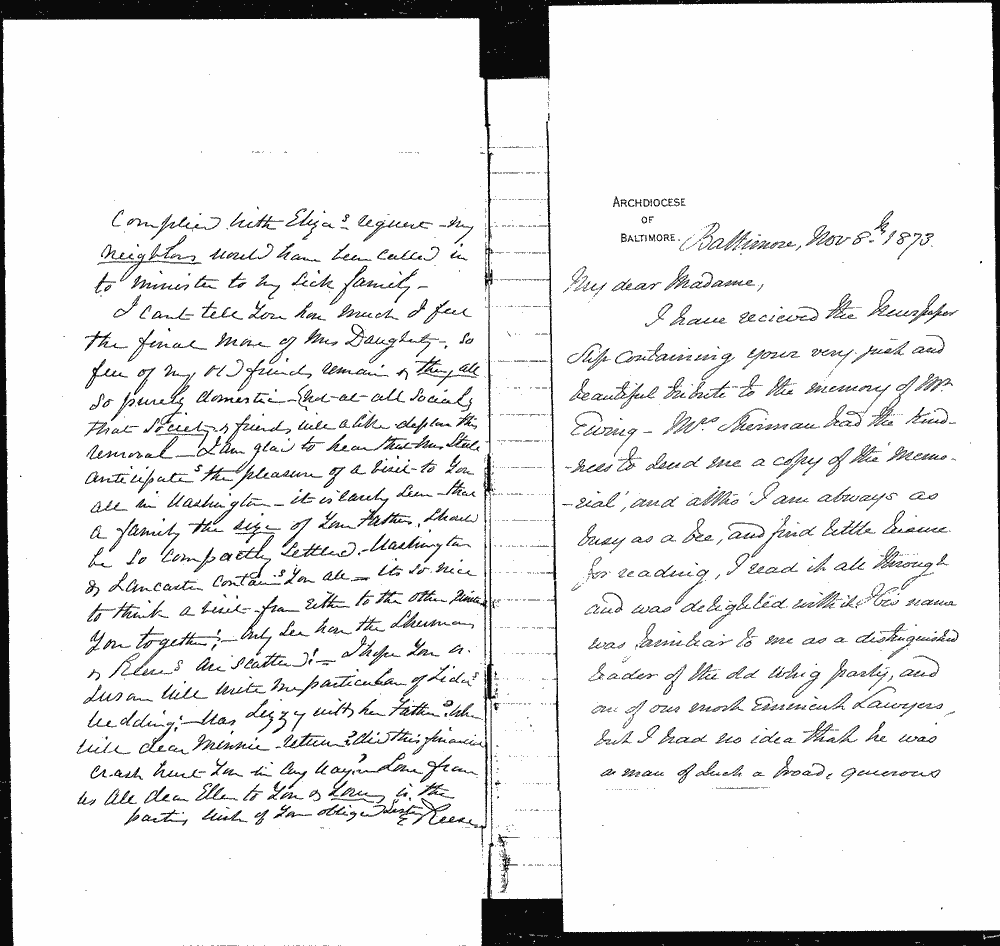 Complied with Eliza's request - my
neighbors would have been called in
to minister to my sick family -
I cant tell you how much I feel
the final move of Mrs Daugherty, so
few of my old friends remain & they all
so purely domestic - not at all Society
that Society & friends will alike deplore this
removal - I am glad to hear that Mrs Steele
anticipates the pleasure of a visit to you
all in Washington - it is rarely seen that
a family the size of your Father, should
be so compactly settled. Washington
& Lancaster contains you all - Its so nice
to think a visit from either to the other
you together! - only see how the Shermans
& Reeses are scattered! - I hope you or
Susan will write me particulars of
wedding - Was Lizzy with her Father?
will dear Minnie return? did this financial
crash hurt you in any way? Love from
us all dear Ellen to you & yours is the
parting wish of your obliged Sister E Reese
ARCHDIOCESE
OF
BALTIMORE. Baltimore, Nov 8th 1873.
My dear Madame,
I have recieved the Newspaper
slip containing your very just and
beautiful tribute to the memory of Mr.
Ewing - Mrs Sherman had the kind-
-ness to send me a copy of the 'Memo-
-rial', and altho' I am always as
busy as a bee, and find little leisure
for reading, I read it all through
and was delighted with it. His name
was familiar to me as a distinguished
leader of the old Whig party, and
one of our most Eminent Lawyers,
but I had no idea that he was
a man of such a broad, generous